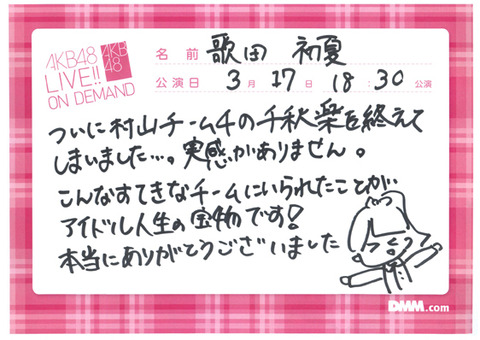 AKB48
LIVE!!
ON DEMAND
AKB
48
名前 歌田 初夏
公演日 3月17日 18:30公演
ついに村山チーム4の千秋楽を終えて
しまいました…。実感がありません。
こんなすてきなチームにいられたことが
アイドル人生の宝物です!
本当にありがとうございました
DMM.com